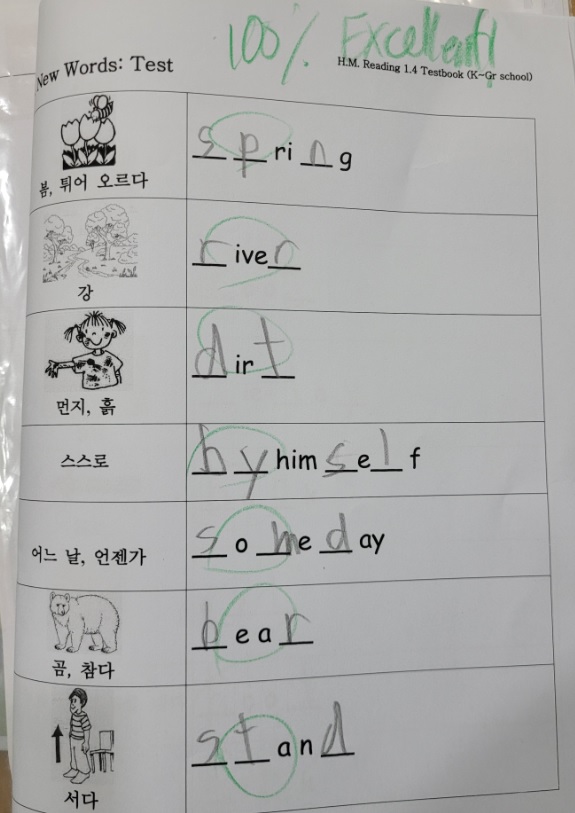 100% Excellent!
New Words: Test
H.M. Reading 1.4 Testbook (K~Gr school)
봄, 튀어 오르다
spring
강
river
먼지, 흙
dirt
스스로
by himself
어느 날, 언젠가
someday
곰, 참다
bear
서다
stand